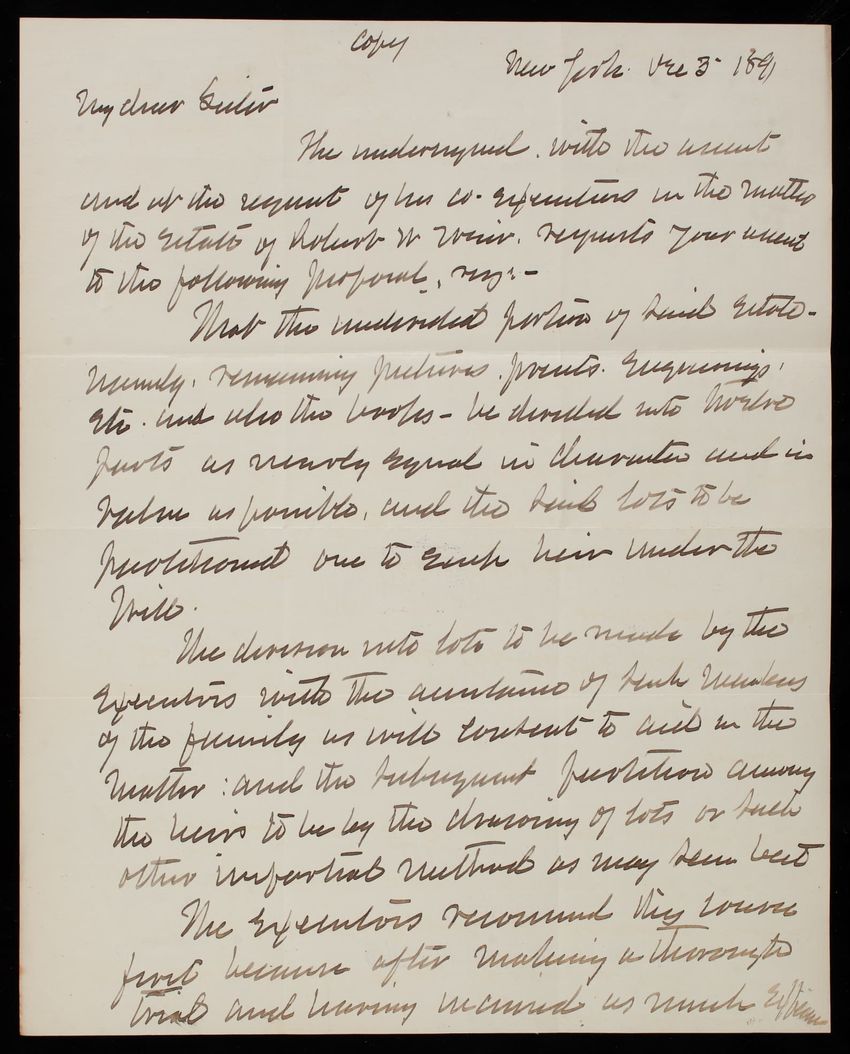 Copy
New York. Dec 5 1891
My dear Sister
The undersigned, with the assent
and at the request of his co-Executors in the matter
of the Estate of Robert W Weir, requests your assent
to the following proposal, viz:-
That the undivided portion of said Estate-
namely, remaining pictures, prints, Engravings,
Etc. and also the books - be divided into twelve
parts as nearly Equal in character and in
value as possible, and the said lots to be
partitioned one to Each heir under the
Will.
The division into lots to be made by the
Executors with the assistance of such members
of the family as will consent to aid in the
matter: and the subsequent partition among
the heirs to be by the drawing of lots or such
other impartial method as may seem best
The Executors recommend this course
first because after making a thorough
trial and having incurred as much Expense